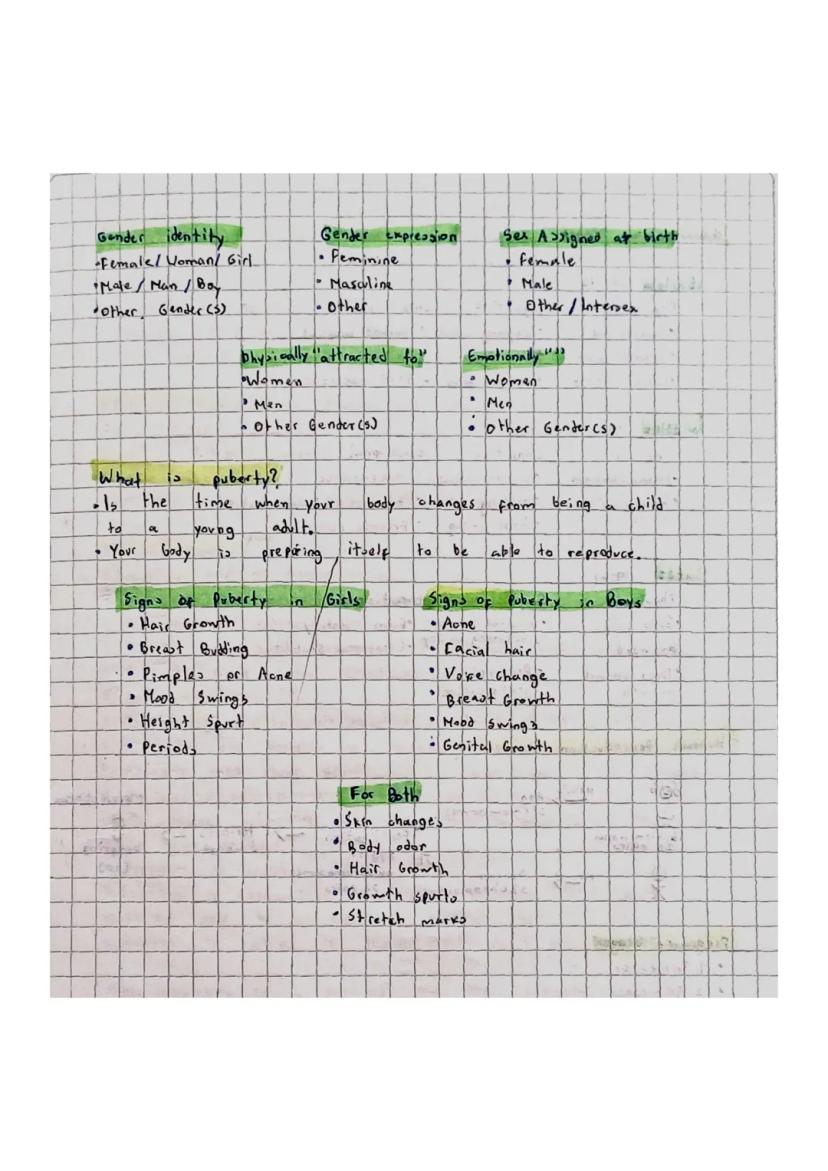 Gender identity
• Female / Woman / Girl
• Male / Man / Boy
• Other Gender(s)
Gender expression
• Feminine
• Masculine
• Other
Sex Assigned at birth
• Female
• Male
• Other / Intersex
Physically "attracted to"
• Women
• Men
• Other Gender(s)
Emotionally " "
• Women
• Men
• Other Gender(s)
What is puberty?
• Is the time when your body changes from being a child
to a young adult.
• Your body is preparing itself to be able to reproduce.
Signs of Puberty in Girls
• Hair Growth
• Breast Budding
• Pimples or Acne
• Mood Swings
• Height Spurt
• Periods
Signs of Puberty in Boys
• Acne
• Facial hair
• Voice change
• Breast Growth
• Mood Swings
• Genital Growth
For Both
• Skin changes
• Body odor
• Hair Growth
• Growth spurts
• Stretch marks